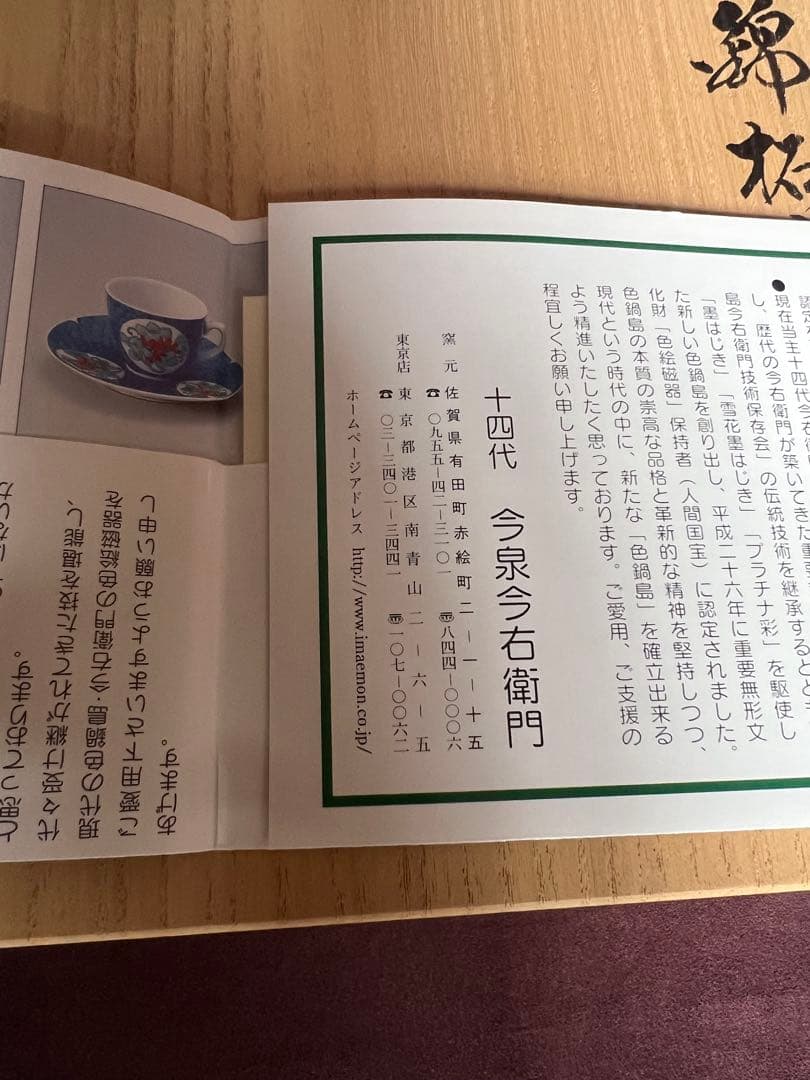 錦
認定
現在当主十四代今右衛
し、歴代の今右衛門が築いてきた重要
島今右衛門技術保存会」の伝統技術を継承するととも
「墨はじき」「雪花墨はじき」「プラチナ彩」を駆使し
た新しい色鍋島を創り出し、平成二十六年に重要無形文
化財「色絵磁器」保持者(人間国宝)に認定されました。
色鍋島の本質の崇高な品格と革新的な精神を堅持しつつ、
現代という時代の中に、新たな「色鍋島」を確立出来る
よう精進いたしたく思っております。ご愛用、ご支援の
程宜しくお願い申し上げます。
十四代 今泉今右衛門
窯元 佐賀県有田町赤絵町二―一―十五
☎〇九五五―四二―三一〇一 〠八四四―〇〇〇六
東京店 東京都港区南青山二―六―五
☎〇三―三四〇一―三四四一 〠一〇七―〇〇六二
ホームページアドレス http://www.imaemon.co.jp/
と思っております。
代々受け継がれてきた技を堪能し、
現代の色鍋島・今右衛門の色絵磁器を
ご愛用下さいますようお願い申し
あげます。